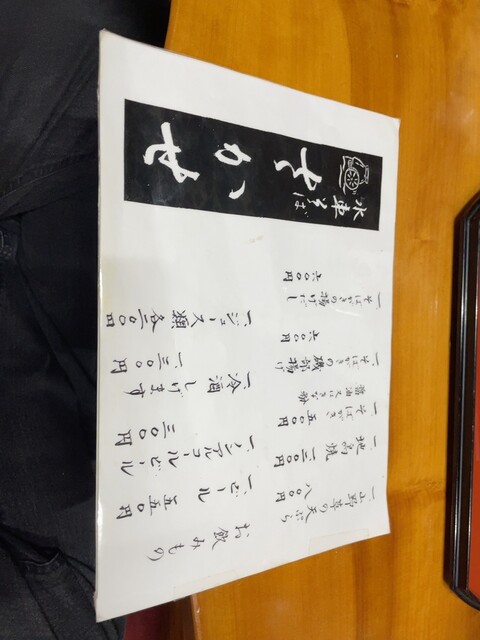 水車そば
一、山野草の天ぷら
八〇〇円
一、地鳥焼 一三〇〇円
一、そばがき 五〇〇円
一、そばがきの磯部揚げ
六〇〇円
一、そばがきの揚げだし
六〇〇円
お飲みもの
一、ビール 五五〇円
一、ノンアルコールビール
三〇〇円
一、冷酒しげます
一、三〇〇円
一、ジュース類 各二〇〇円